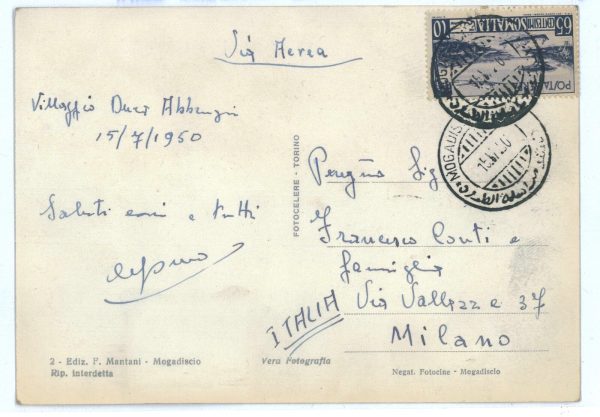 Via Aerea
Villaggio Duca Abbruzzi
15/7/1950
Saluti cari a tutti
FOTOCELERE - TORINO
65 SOMALIA 10
POSTA
MOGADIS
Francesco Conti e
famiglia
Via Vallazze 37
Milano
ITALIA
2 - Ediz. F. Mantani - Mogadiscio
Rip. interdetta
Vera Fotografia
Negat. Fotocine - Mogadiscio